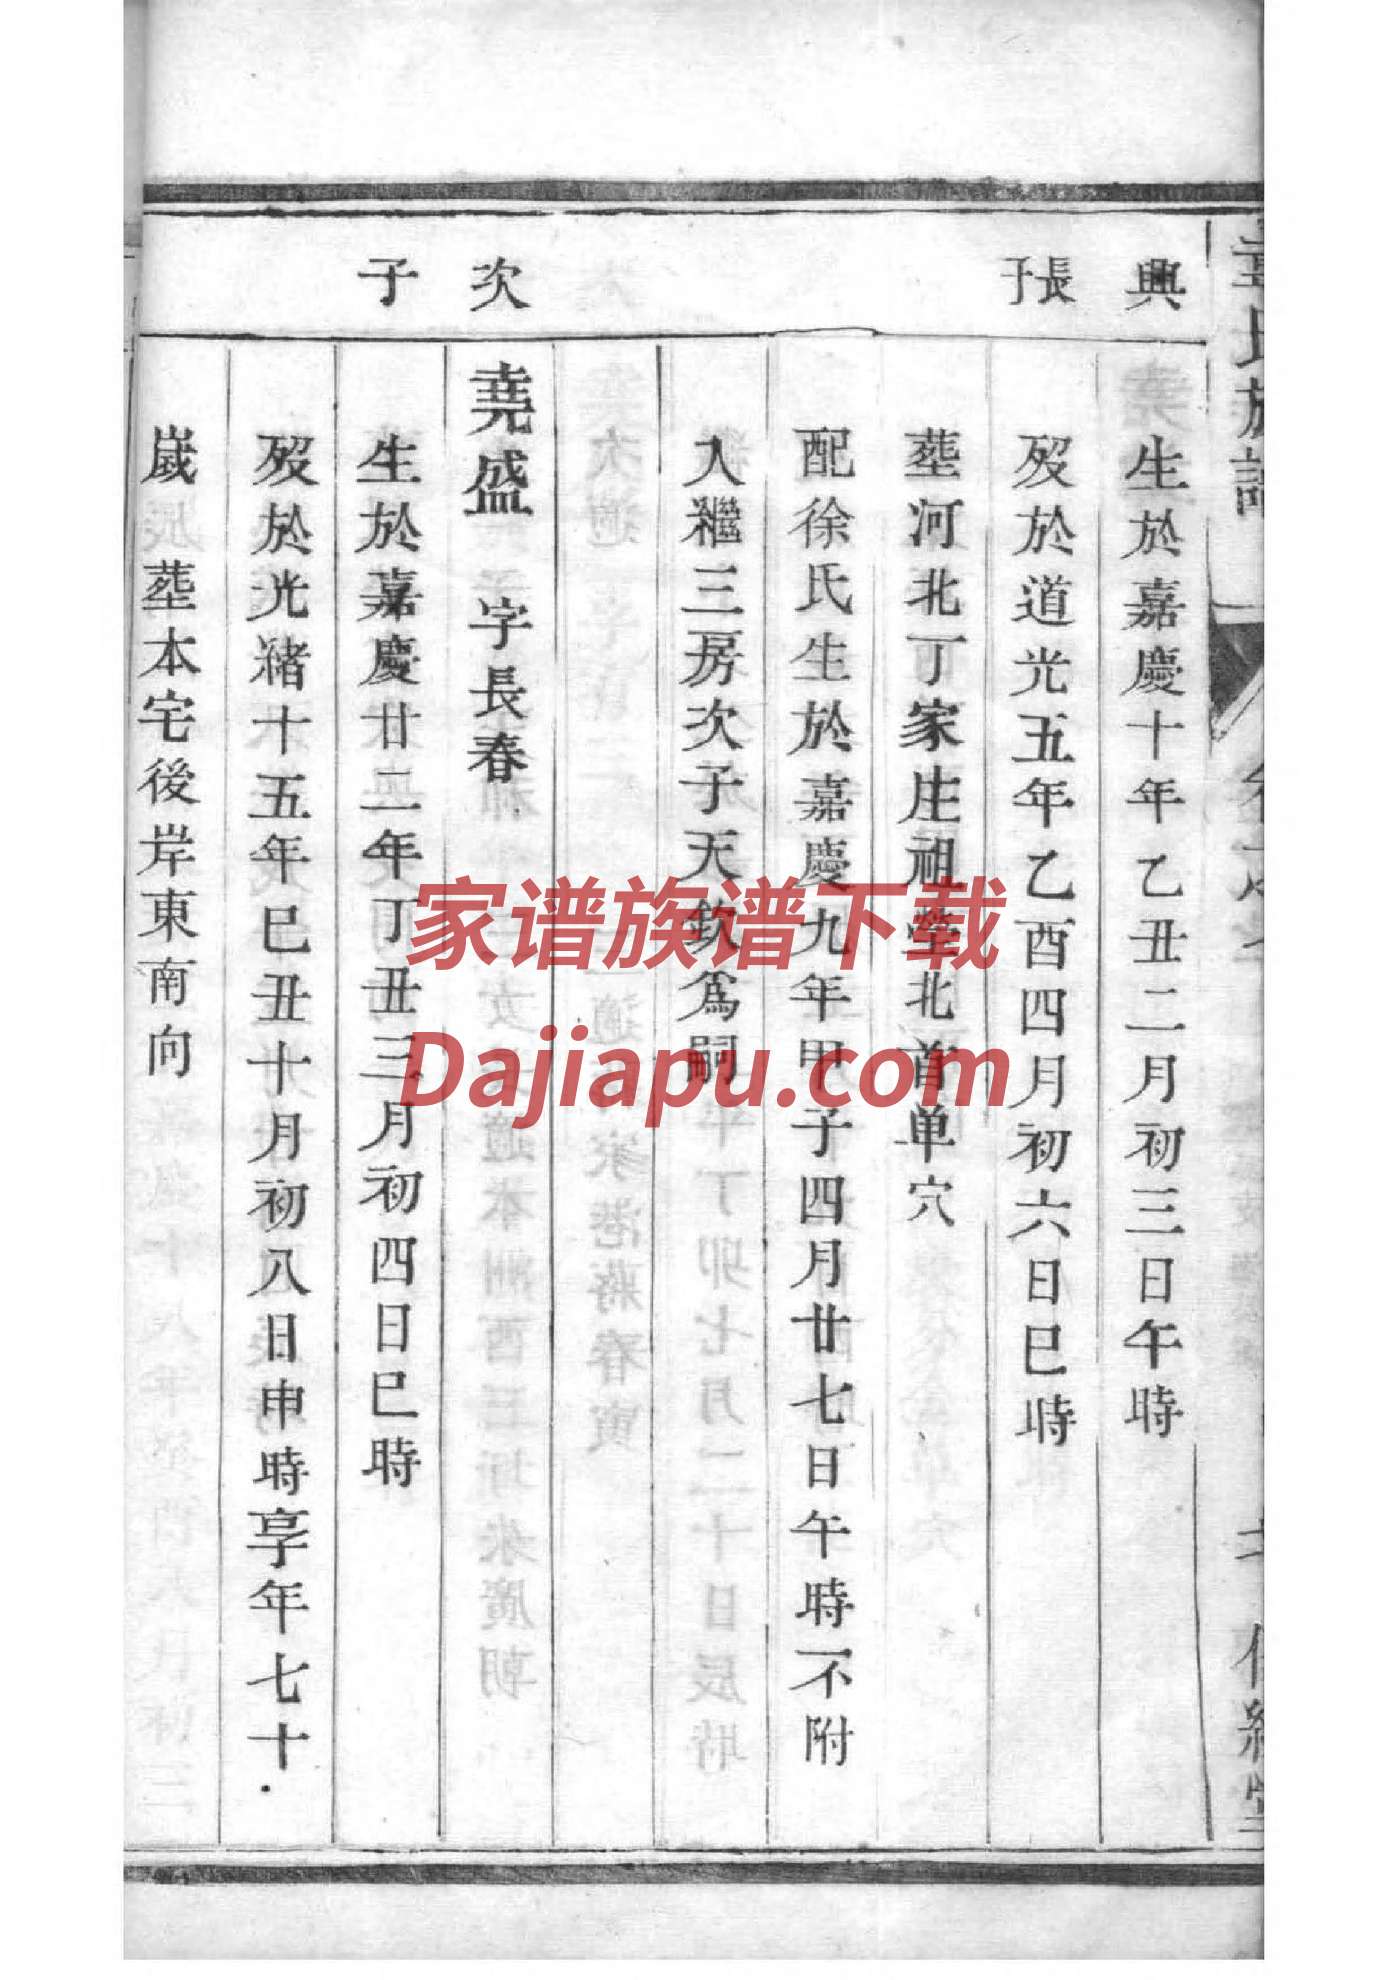 興
長子
生於嘉慶十年乙丑二月初三日午時
歿於道光五年乙酉四月初六日巳時
葬河北丁家庄祖塋北首単穴
配徐氏生於嘉慶九年甲子四月廿七日午時不附
入繼三房次子天欽爲嗣
次
子
尭盛 字長春
生於嘉慶廿二年丁丑三月初四日巳時
歿於光緒十五年巳丑十月初八日申時享年七十
嵗 葬本宅後岸東南向
家谱族谱下载
Dajiapu.com